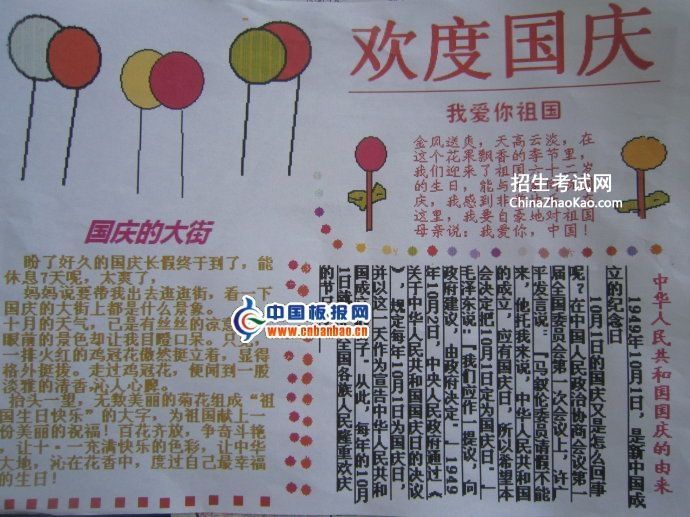 欢度国庆
我爱你祖国
金凤送爽，天高云淡，在
这个花果飘香的季节里，
我们迎来了祖国六十三岁
的生日，能与
庆，我感到非
这里，我要自豪地对祖国
母亲说：我爱你，中国！
招生考试网
ChinaZhaoKao.com
国庆的大街
盼了好久的国庆长假终于到了，能
休息7天呢，太爽了，
妈妈说要带我出去逛逛街，看一下
国庆的大街上都是什么景象。
十月的天气，已是有丝丝的凉意
眼 却让我目瞪口呆。只
一排火红的鸡冠花傲然挺立着，显得
格外挺拔。走过鸡冠花，便闻到一股
淡雅的清香沁人心脾。
抬头一望，无数美丽的菊花组成“祖
国生日快乐”的大字，为祖国献上一
份美丽的祝福！百花齐放，争奇斗艳
，让十·一充满快乐的色彩，让中华
大地，沁在花香中，度过自己最幸福
的生日！
中国板报网
www.cnbanbao.cn
中华人民共和国国庆的由来
1949年10月1日，是新中国成
立的纪念日
10月1日的国庆又是怎么回事
呢？在中国人民政治协商会议第一
届全国委员会第一次会议上，许广
平发言说：“马叙伦委员请假不能
来，他托我来说，中华人民共和国
的成立，应有国庆日，所以希望本
会决定把10月1日定为国庆日。”
毛泽东说：“我们应作一提议，向
政府建议，由政府决定。”1949
年10月2日，中央人民政府通过《
关于中华人民共和国国庆日的决议
》，规定每年10月1日为国庆日，
并以这一天作为宣告中华人民共和
国成立的日子。从此，每年的10月
1日就 国各族人民隆重欢庆
的节日